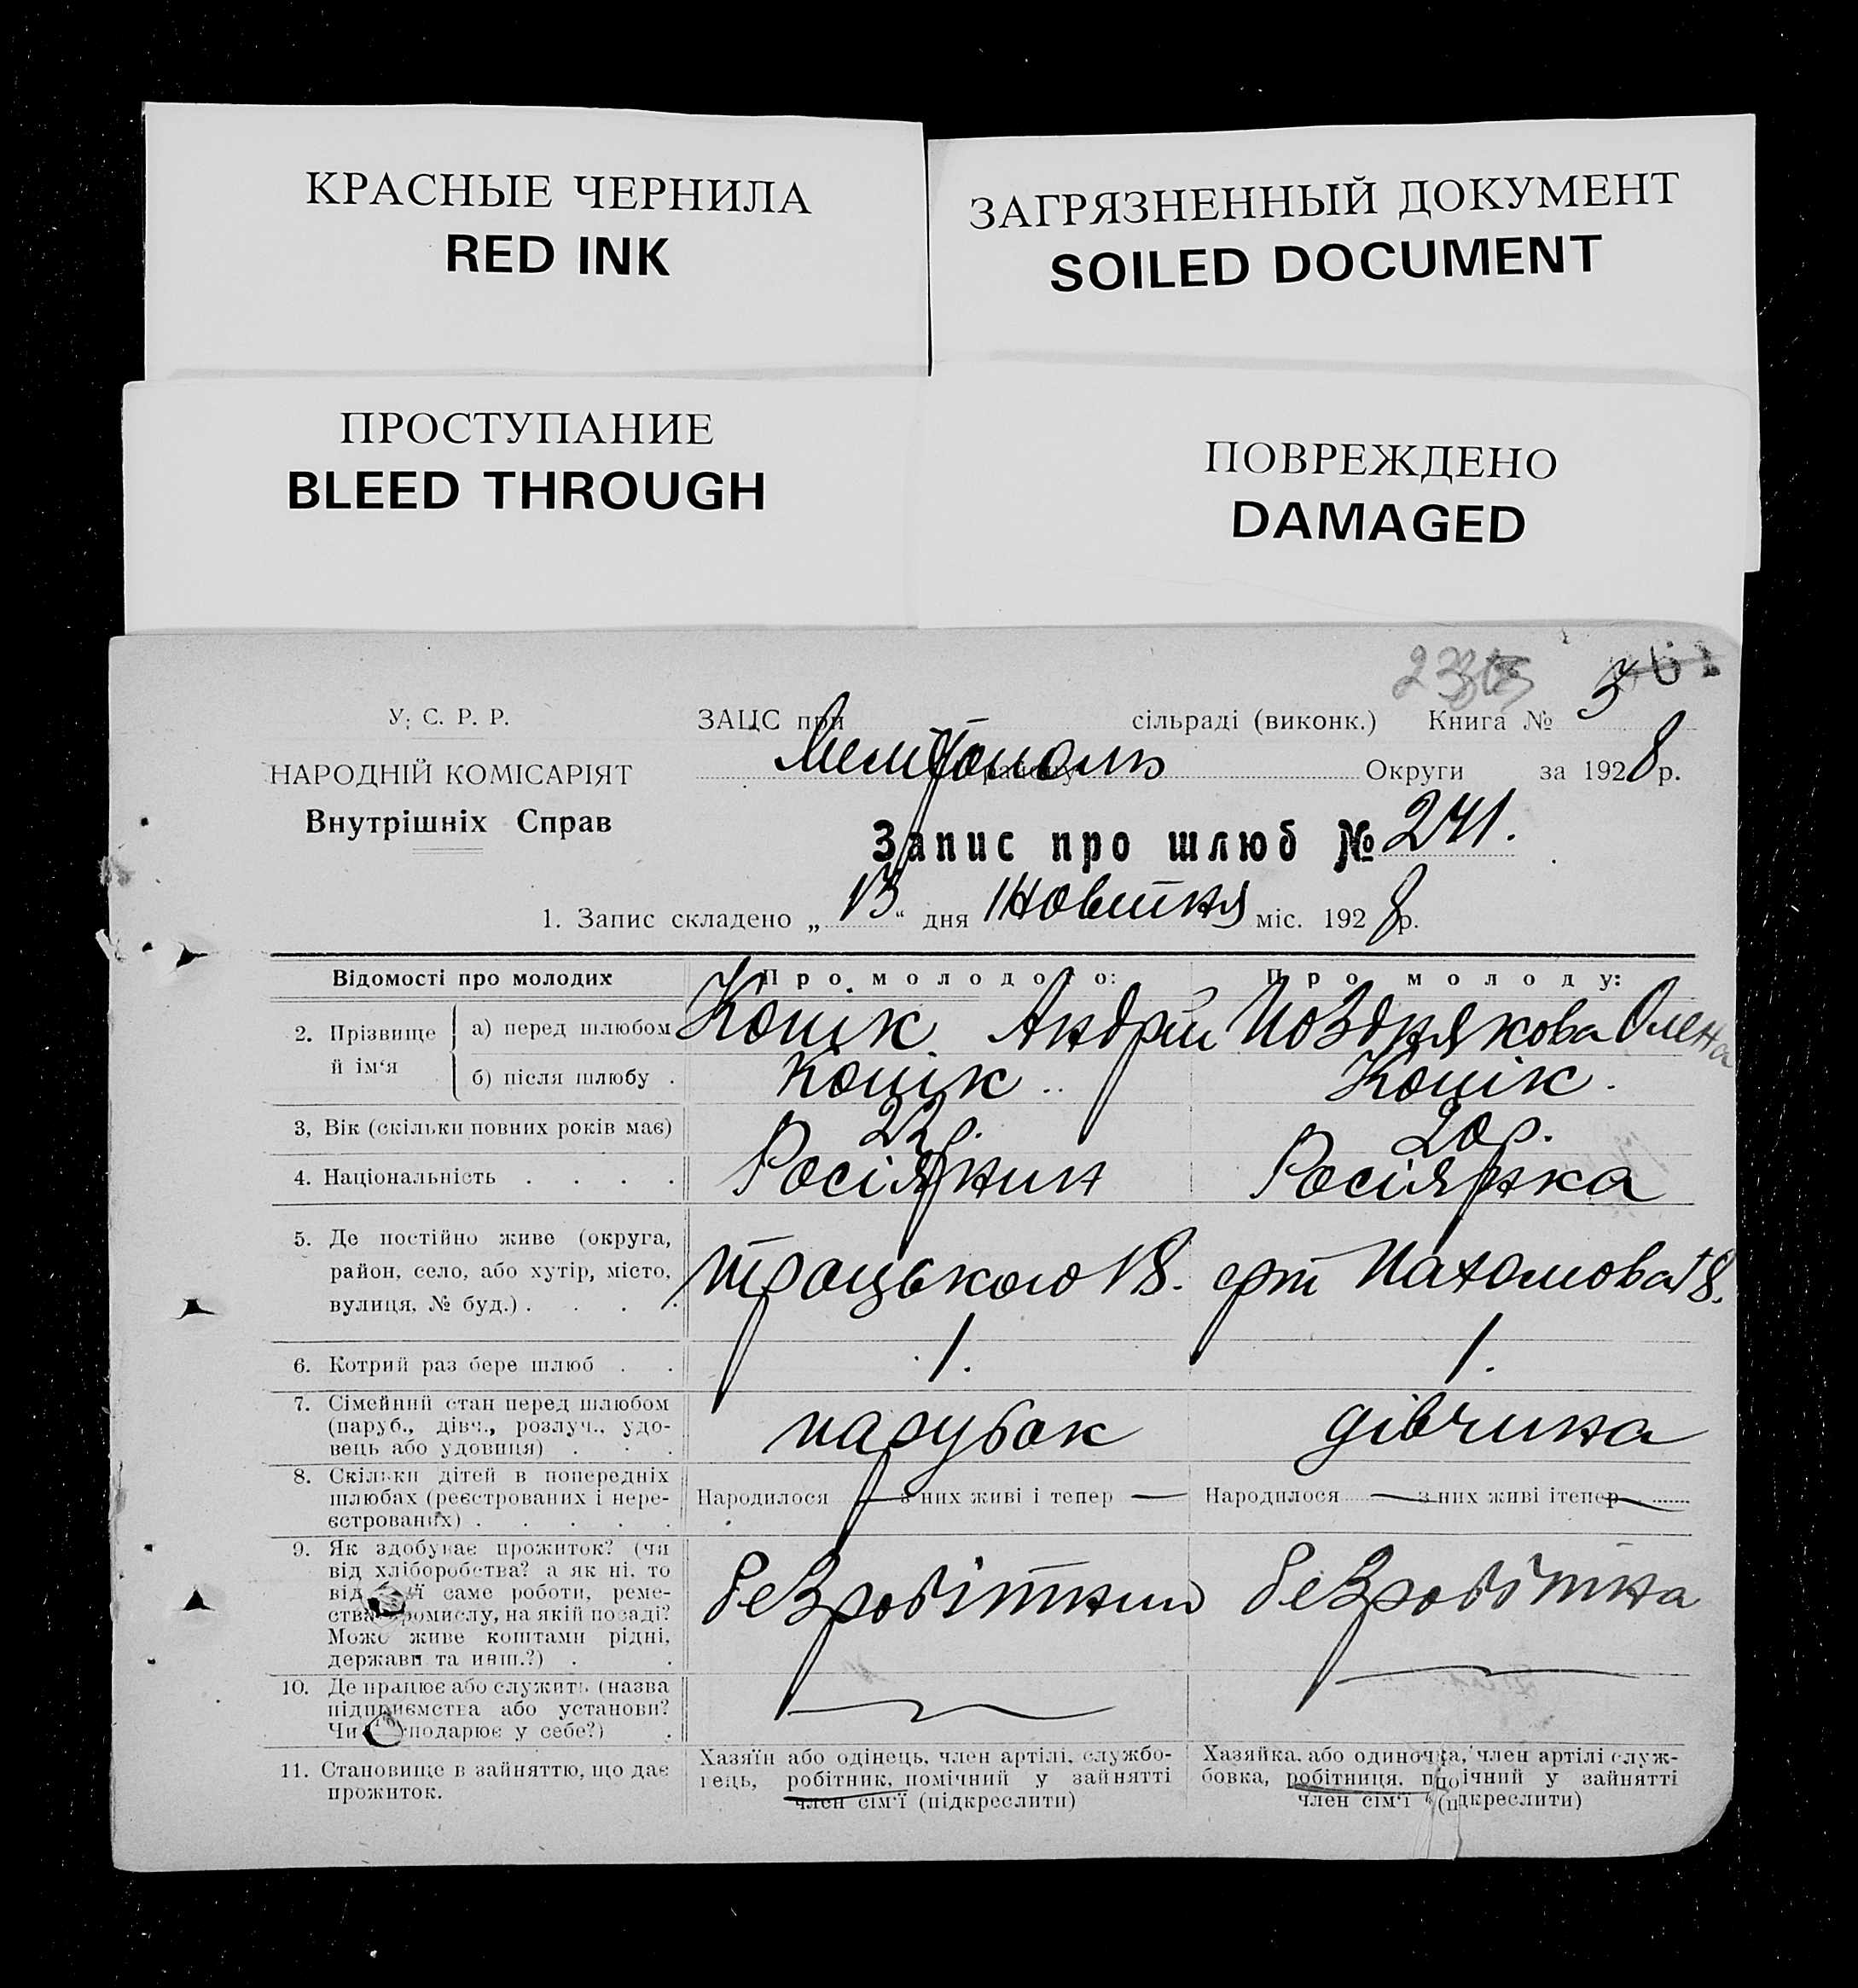 КРАСНЫЕ ЧЕРНИЛА
RED INK
ЗАГРЯЗНЕННЫЙ ДОКУМЕНТ
SOILED DOCUMENT
ПРОСТУПАНИЕ
BLEED THROUGH
ПОВРЕЖДЕНО
DAMAGED
У. С. Р. Р.
НАРОДНІЙ КОМІСАРІЯТ
Внутрішніх Справ
ЗАЦС при сільраді (виконк.) Книга № 3
Мелітополь району Округи за 1928 р.
Запис про шлюб № 241.
1. Запис складено „13“ дня Жовтня міс. 1928 р.
Відомості про молодих
Про молодого:
Про молоду:
2. Прізвище й ім'я
а) перед шлюбом
Коцік Андрій
Позднякова Олена
б) після шлюбу .
Коцік
Коцік.
3, Вік (скільки повних років має)
22 р.
20 р.
4. Національність . . . .
Росіянин
Росіянка
5. Де постійно живе (округа,
район, село, або хутір, місто,
вулиця, № буд.) . . . .
Троцького 18.
Пахомова 18.
6. Котрий раз бере шлюб . .
1.
1.
7. Сімейний стан перед шлюбом
(паруб., дівч., розлуч., удо-
вець або удовиця) . . .
парубок
дівчина
8. Скільки дітей в попередніх
шлюбах (реєстрованих і нере-
єстрованих) . . . . .
Народилося — з них живі і тепер —
Народилося — з них живі і тепер —
9. Як здобуває прожиток? (чи
від хліборобства? а як ні, то
від саме роботи, реме-
ства промислу, на якій посаді?
Може живе коштами рідні,
держави та инш.?) . .
безробітний
безробітна
10. Де працює або служить (назва
підприємства або установи?
Чи господарює у себе?) .
11. Становище в зайняттю, що дає
прожиток.
Хазяїн або одінець, член артілі, службо-
вець, робітник, помічний у зайнятті
член сім'ї (підкреслити)
Хазяйка, або одиночка, член артілі служ-
бовка, робітниця, помічний у зайнятті
член сім'ї (підкреслити)